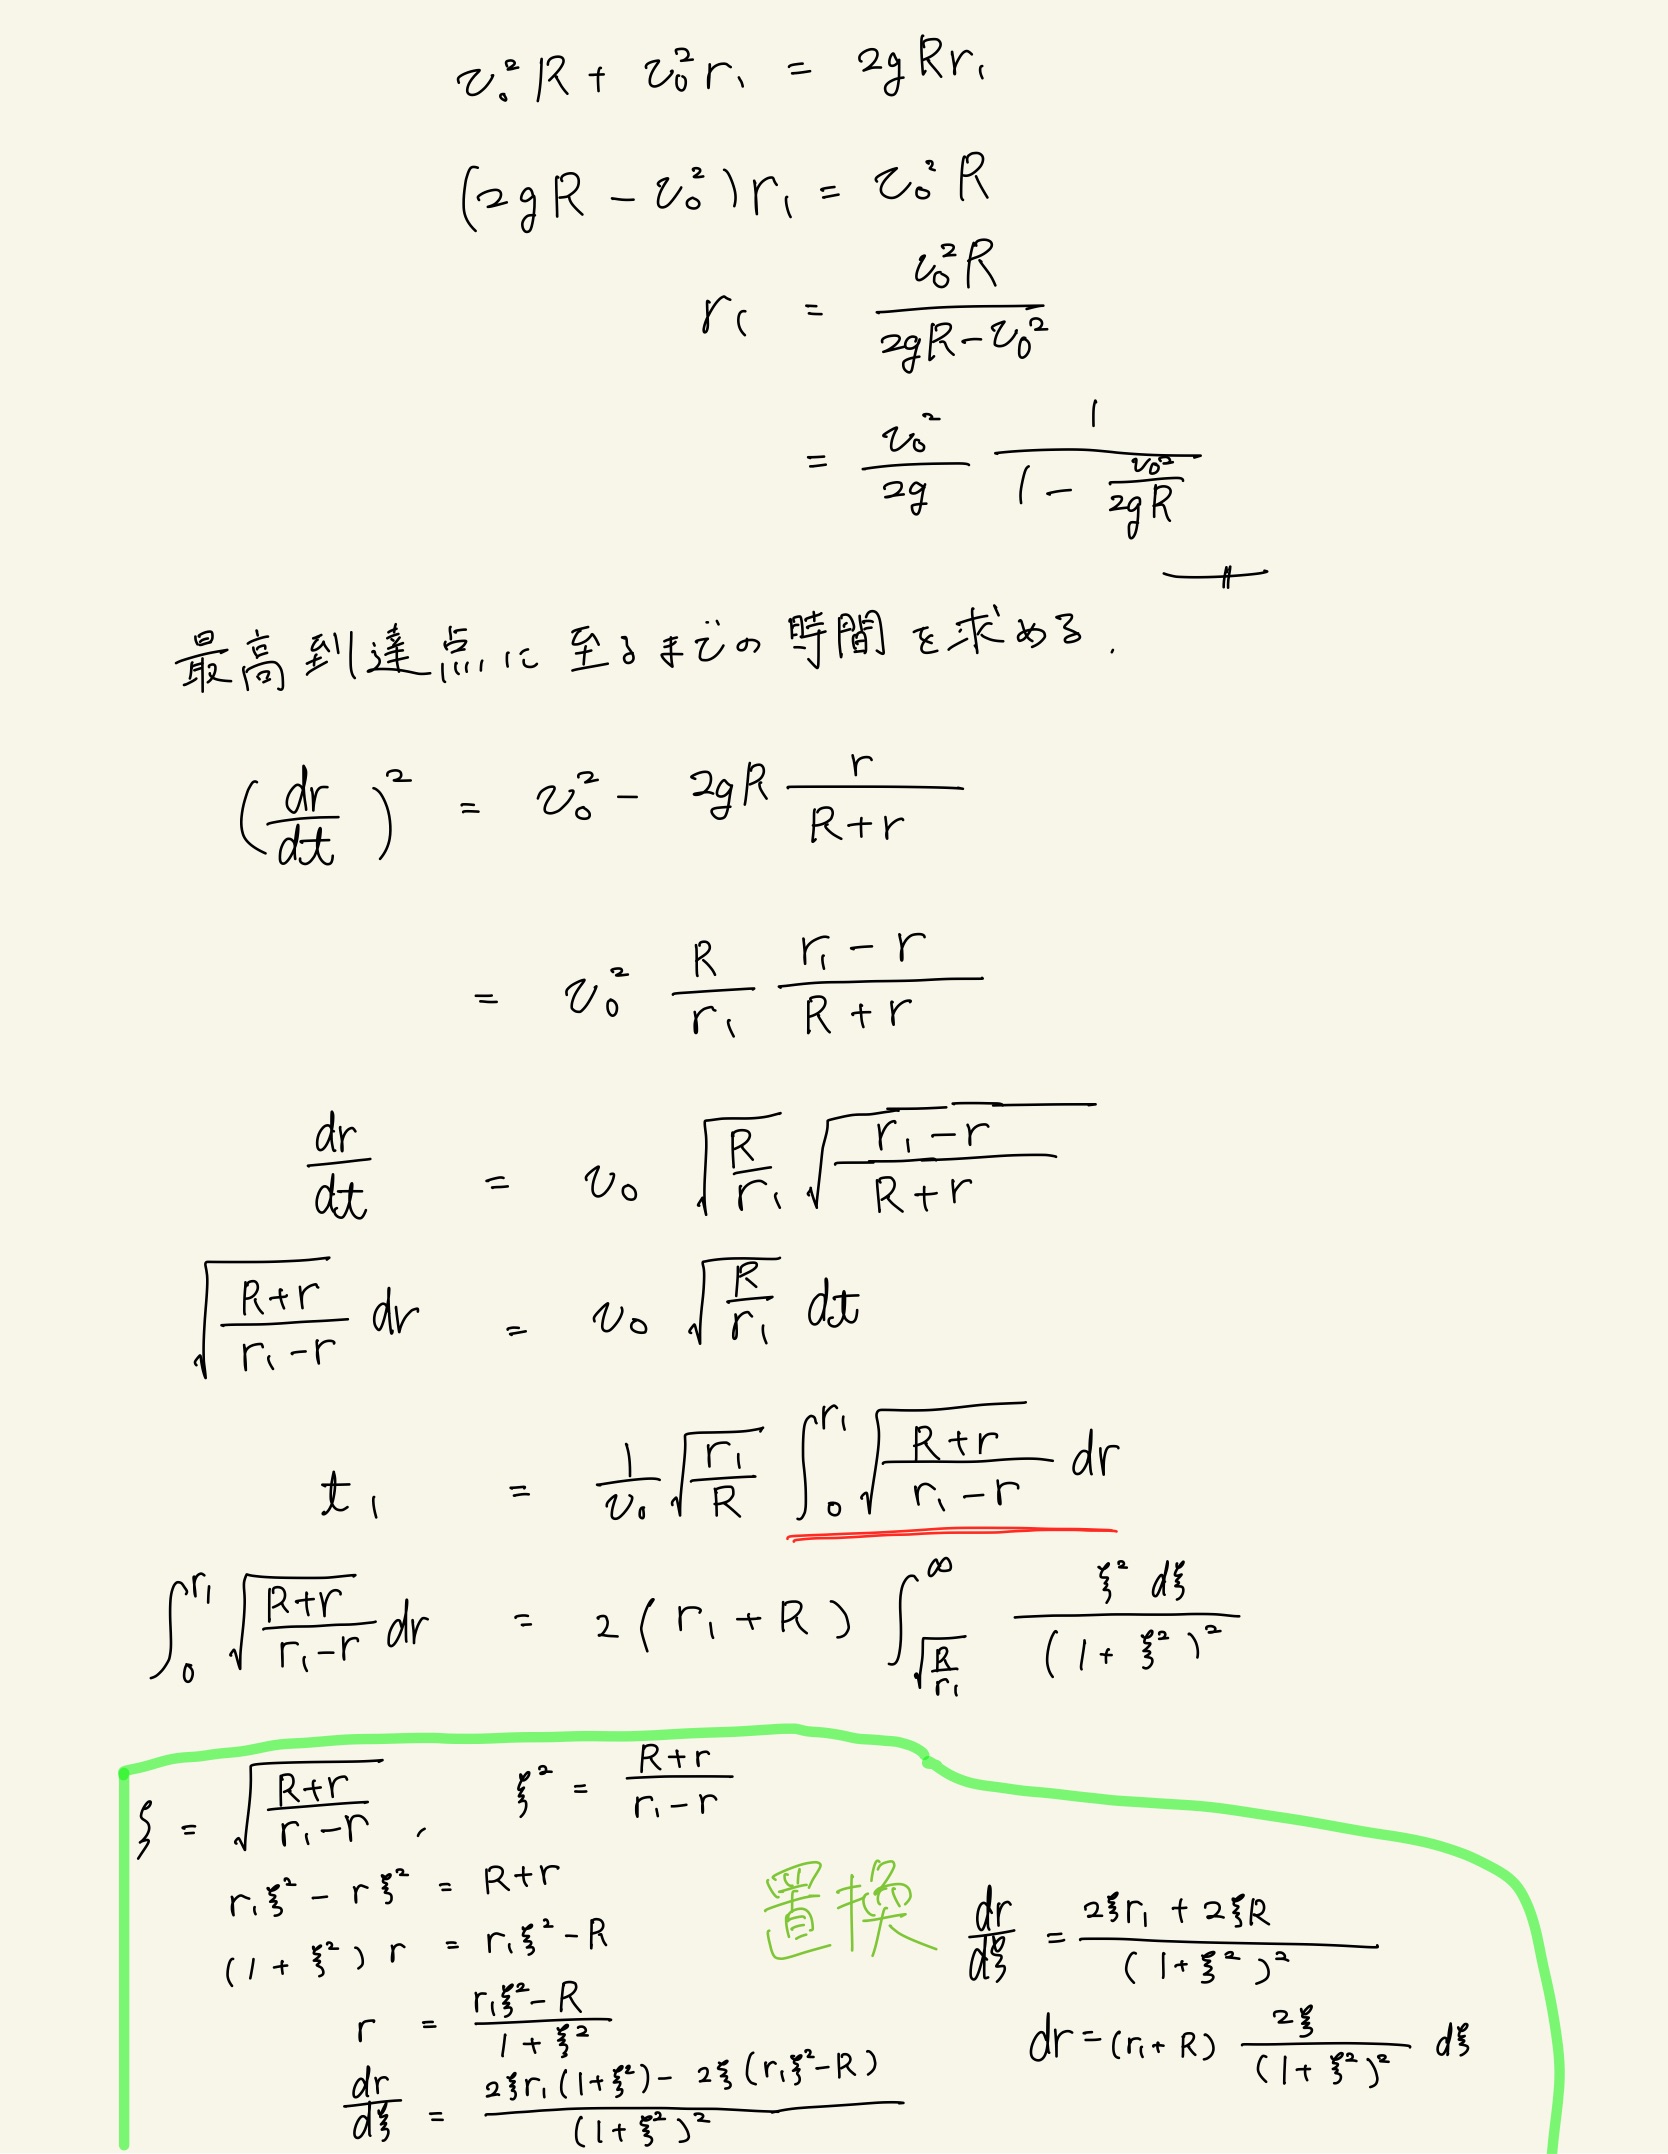 v₀²R + v₀²r₁ = 2gRr₁
(2gR − v₀²)r₁ = v₀²R
r₁ = \frac{v₀²R}{2gR − v₀²}
= \frac{v₀²}{2g} \frac{1}{1 − \frac{v₀²}{2gR}}
最高到達点に至るまでの時間を求める.
(\frac{dr}{dt})² = v₀² − 2gR \frac{r}{R+r}
= v₀² \frac{R}{r₁} \frac{r₁ − r}{R + r}
\frac{dr}{dt} = v₀ \sqrt{\frac{R}{r₁}} \sqrt{\frac{r₁ − r}{R + r}}
\sqrt{\frac{R+r}{r₁−r}} dr = v₀ \sqrt{\frac{R}{r₁}} dt
t₁ = \frac{1}{v₀} \sqrt{\frac{r₁}{R}} \int_0^{r₁} \sqrt{\frac{R+r}{r₁−r}} dr
\int_0^{r₁} \sqrt{\frac{R+r}{r₁−r}} dr = 2(r₁ + R) \int_{\sqrt{\frac{R}{r₁}}}^{∞} \frac{ξ² dξ}{(1 + ξ²)²}
ξ = \sqrt{\frac{R+r}{r₁−r}} , ξ² = \frac{R+r}{r₁−r}
r₁ξ² − rξ² = R+r
(1 + ξ²) r = r₁ξ² − R
r = \frac{r₁ξ² − R}{1 + ξ²}
\frac{dr}{dξ} = \frac{2ξr₁(1+ξ²) − 2ξ(r₁ξ²−R)}{(1+ξ²)²}
置換
\frac{dr}{dξ} = \frac{2ξr₁ + 2ξR}{(1+ξ²)²}
dr = (r₁ + R) \frac{2ξ}{(1+ξ²)²} dξ